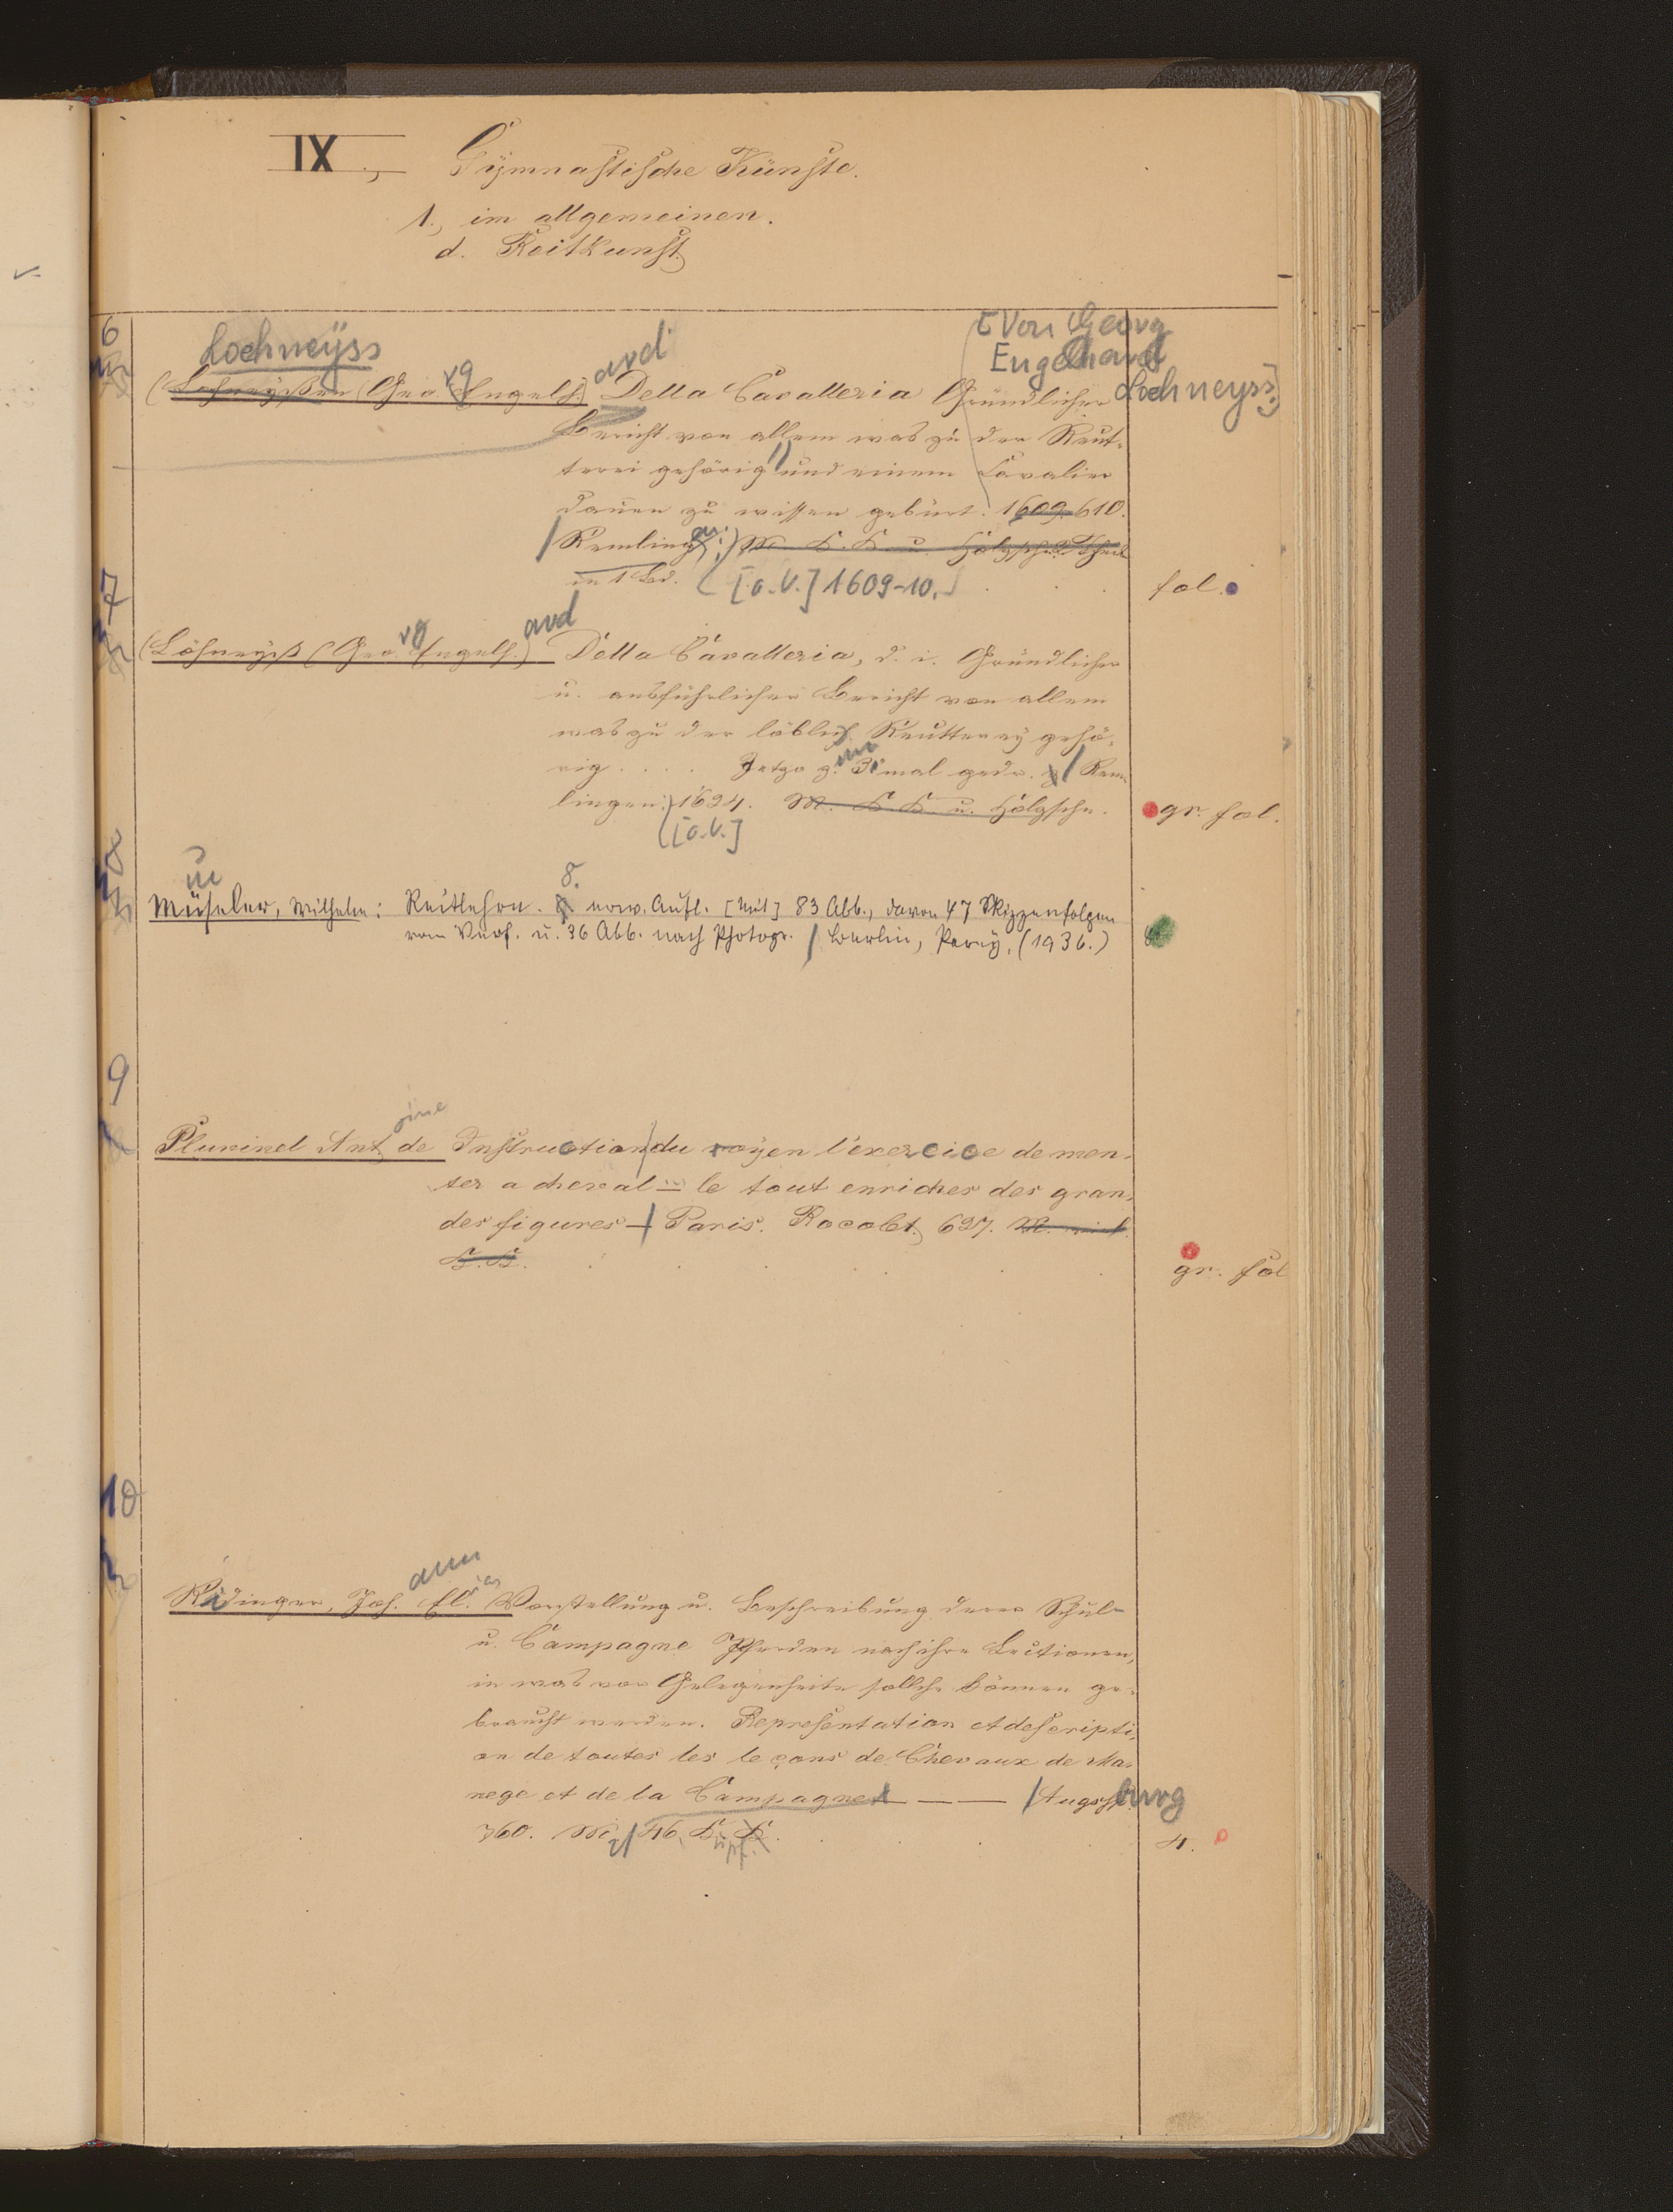 IX., Gymnastische Künste.
1., im allgemeinen.
d. Reitkunst
6
Loehneyss
[Von Georg
Engelhard
Loehneyss:]
(Löhneyßen (Geo. rg Engelh.) ard Della Cavalleria Gründlicher
Bericht von allem was zu der Reut-
terei gehörig und einem Cavalier
davon zu wissen gebürt. 1609. 610.
Remling M. K. K. u. Holzschn. 2 Theile
in 1 Bd. ([o.V.] 1609-10.) fol.
7
(Löhneyß (Geo. rg Engelh.) ard Della Cavalleria, d. i. Gründlicher
u. ausführlicher Bericht von allem
was zu der löblich. Reutterey gehö-
rig . . . . Jetzo z. 3 mal gedr. Rem-
lingen: 1624. M. K. K. u. Holzschn. gr. fol.
[o.V.]
8
Müseler, Wilhelm: Reitlehre. 8. erw. Aufl. [Mit] 83 Abb., davon 47 Skizzenfolgen
vom Verf. u. 36 Abb. nach Photogr. / Berlin, Parey, (1936.)
9
Pluvinel Ant oine de Instruction du royen l'exercice de mon-
ter a cheval = le tout enriches des gran-
des figures — Paris. Rocolet. 627. M. viel.
K. K. gr. fol
10
Ridinger, Joh. ann El. ias Vorstellung u. Beschreibung derer Schul-
u. Campagne Pferden nach ihre Lectionen,
in was vor Gelegenheite sollche können ge-
braucht werden. Representation et descripti-
on de toutes les leçons de Chevaux de Ma-
nege et de la Campagne — — / Augsburg
760. M. 46 K. upf. K. 4.